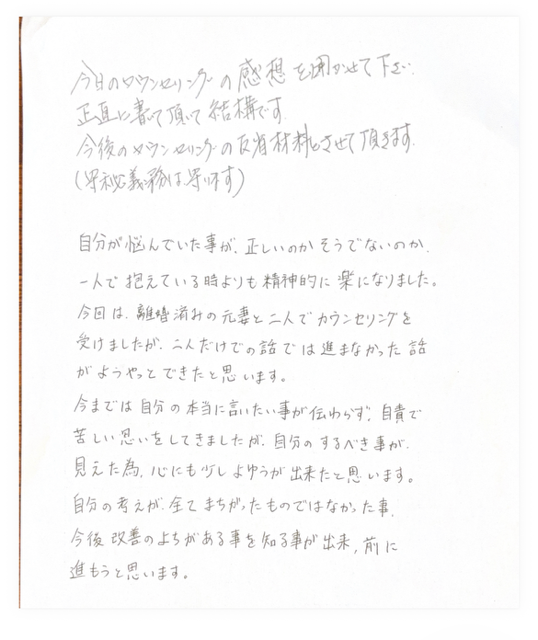 今日のカウンセリングの感想を聞かせて下さい.
正直に書いて頂いて結構です.
今後のカウンセリングの反省材料とさせて頂きます.
(守秘義務は守ります)
自分が悩んでいた事が、正しいのかそうでないのか、
一人で抱えている時よりも精神的に楽になりました。
今回は、離婚済みの元妻と二人でカウンセリングを
受けましたが、二人だけでの話では進まなかった話
がようやっとできたと思います。
今までは自分の本当に言いたい事が伝わらず、自責で
苦しい思いをしてきましたが、自分のするべき事が、
見えた為、心にも少しよゆうが出来たと思います。
自分の考えが、全てまちがったものではなかった事、
今後改善のよちがある事を知る事が出来、前に
進もうと思います。